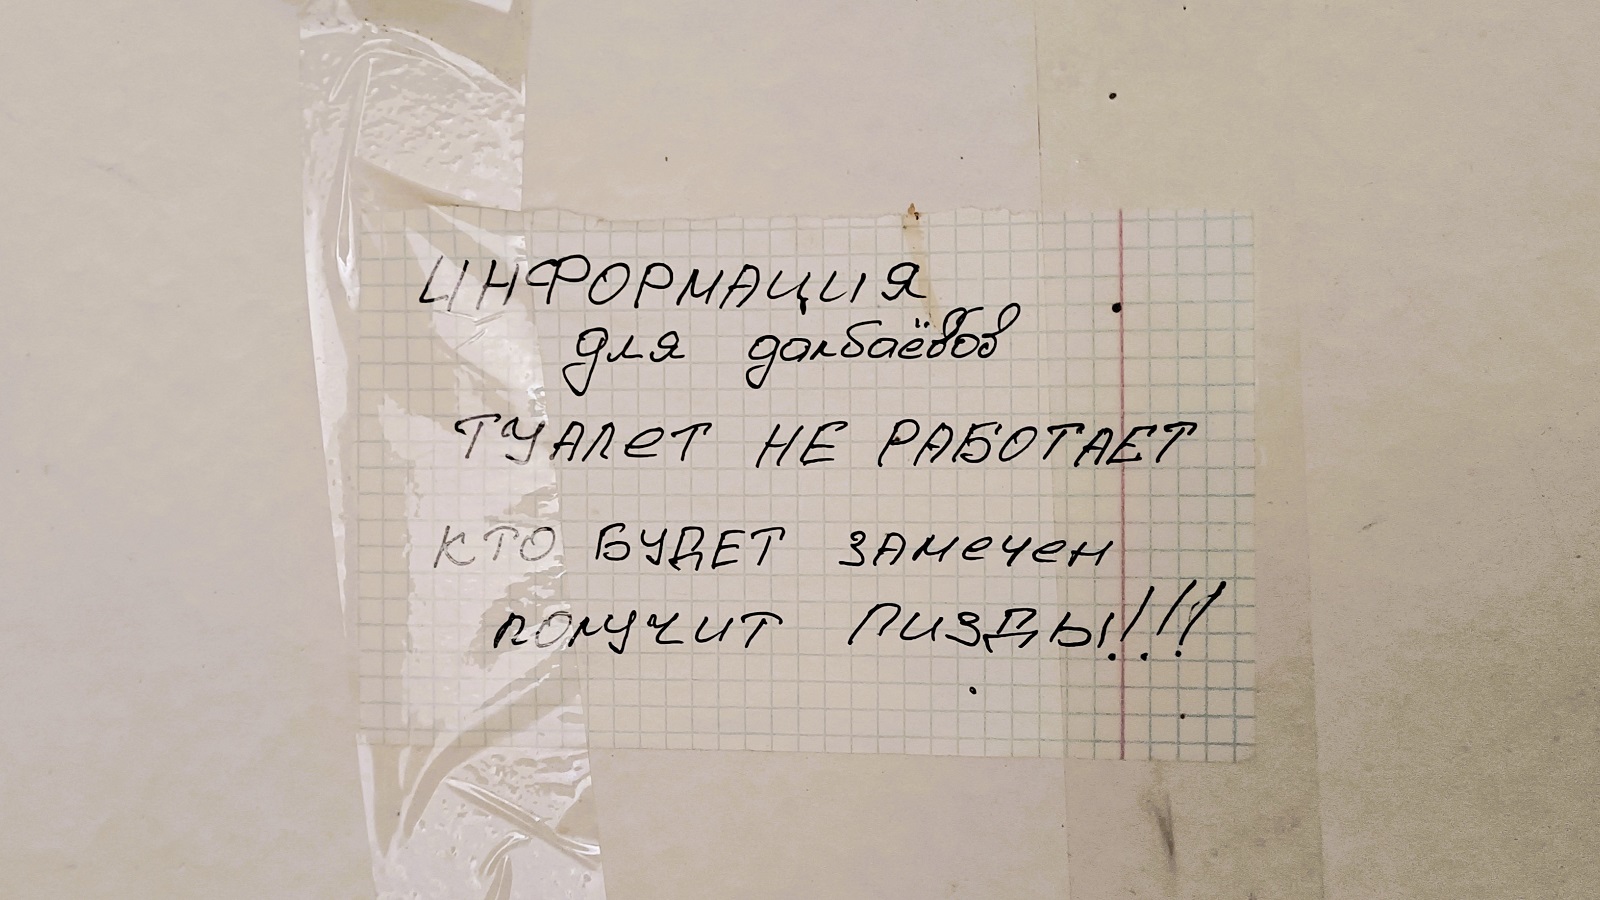 ИНФОРМАЦИЯ
для далбаёбов
ТУАЛеТ НЕ РАБОТАЕТ
КТО БУДЕТ ЗАМечеН
ПОЛУЧИТ ПИЗДЫ!!!